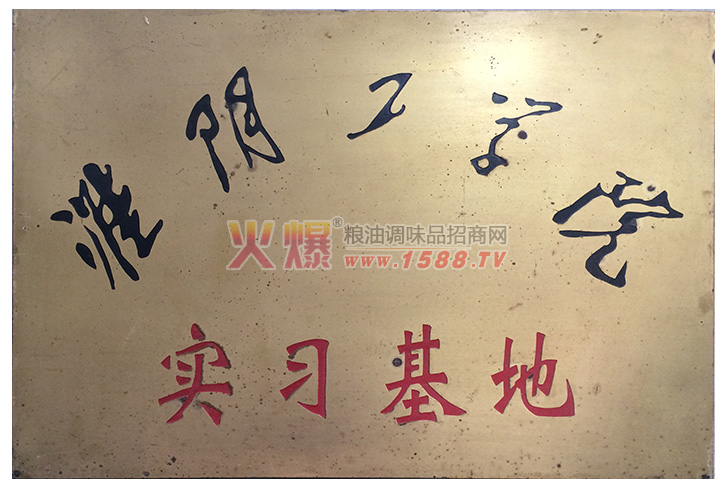 淮阴工学院
火爆®粮油调味品招商网
www.1588.TV
实习基地